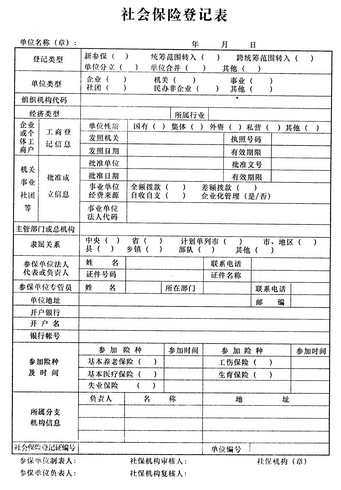 社会保险登记表
单位名称（章）： 年 月 日
登记类型 新参保（ ） 统筹范围转入（ ） 跨统筹范围转入（ ）
单位分立（ ） 单位合并（ ） 其他（ ）
单位类型 企业（ ） 机关（ ） 事业（ ）
社团（ ） 民办非企业（ ） 其他（ ）
组织机构代码
经济类型 所属行业
企业或个体工商户 工商登记信息 单位性质 国有（ ）集体（ ）外资（ ）私营（ ）其他（ ）
发照机关 执照号码
发照日期 有效期限
机关事业社团等 批准成立信息 批准单位 批准文号
批准日期 有效期限
事业单位经费来源 全额拨款（ ） 差额拨款（ ）
自收自支（ ） 企业化管理（是/否）
事业单位法人代码
主管部门或总机构
隶属关系 中央（ ） 省（ ） 计划单列市（ ） 市、地区（ ）
县（ ） 乡镇（ ） 部队（ ） 其他（ ）
参保单位法人代表或负责人 姓 名 联系电话
证件号码 证件名称
参保单位专管员 姓 名 所在部门 联系电话
单位地址 邮 编
开户银行
开 户 名
银行帐号
参加险种及 时 间 参 加 险 种 参加时间 参 加 险 种 参加时间
基本养老保险（ ） 工伤保险（ ）
基本医疗保险（ ） 生育保险（ ）
失业保险 （ ）
所属分支机构信息 负责人 名 称 地 址
社会保险登记证编号 单位编号
参保单位制表人： 社保机构审核人： 社保机构（章）
参保单位负责人： 社保机构复核人：